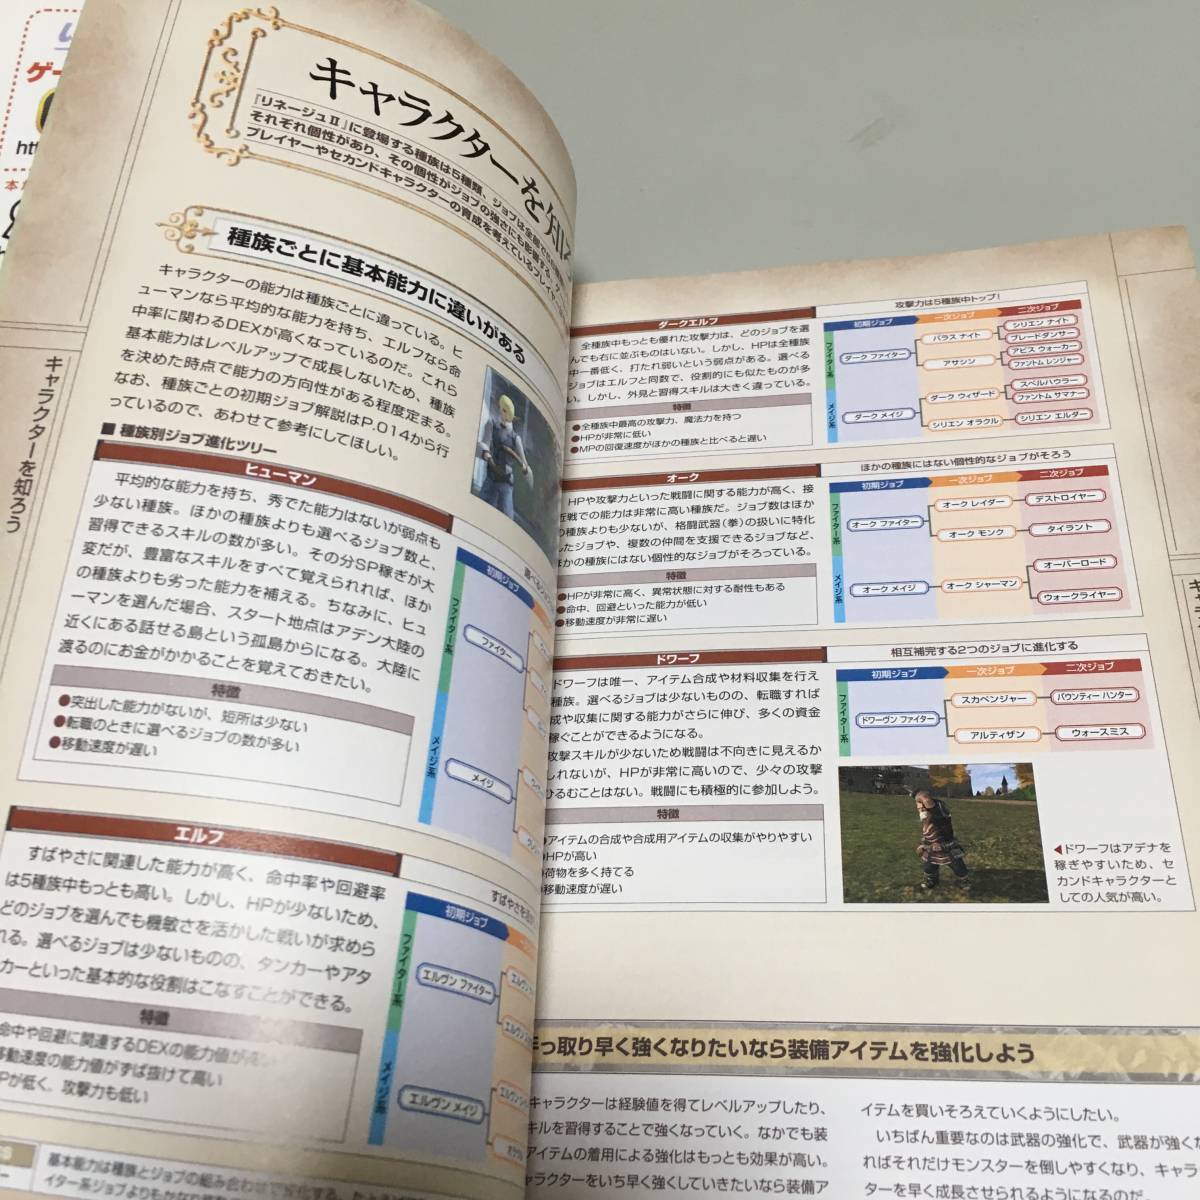 キャラクターを知ろ
『リネージュⅡ』に登場する種族は5種類、ジョブは全部で
それぞれ個性があり、その個性がジョブの強さにも影響する。
プレイヤーやセカンドキャラクターの育成を考えているプレイヤー
種族ごとに基本能力に違いがある
キャラクターの能力は種族ごとに違っている。ヒ
ューマンなら平均的な能力を持ち、エルフなら命
中率に関わるDEXが高くなっているのだ。これら
基本能力はレベルアップで成長しないため、種族
を決めた時点で能力の方向性がある程度定まる。
なお、種族ごとの初期ジョブ解説はP.014から行
っているので、あわせて参考にしてほしい。
■ 種族別ジョブ進化ツリー
ヒューマン
平均的な能力を持ち、秀でた能力はないが弱点も
少ない種族。ほかの種族よりも選べるジョブ数と、
習得できるスキルの数が多い。その分SP稼ぎが大
変だが、豊富なスキルをすべて覚えられれば、ほか
の種族よりも劣った能力を補える。ちなみに、ヒュ
ーマンを選んだ場合、スタート地点はアデン大陸の
近くにある話せる島という孤島からになる。大陸に
渡るのにお金がかかることを覚えておきたい。
特徴
●突出した能力がないが、短所は少ない
●転職のときに選べるジョブの数が多い
●移動速度が遅い
選べるジョ
初期ジョブ
ファイター系
ファイター
メイジ系
メイジ
エルフ
すばやさに関連した能力が高く、命中率や回避率
は5種族中もっとも高い。しかし、HPが少ないため、
どのジョブを選んでも機敏さを活かした戦いが求めら
れる。選べるジョブは少ないものの、タンカーやアタ
カーといった基本的な役割はこなすことができる。
特徴
命中や回避に関連するDEXの能力値が高い
移動速度の能力値がずば抜けて高い
Pが低く、攻撃力も低い
すばやさを
初期ジョブ
ファイター系
エルヴン ファイター
メイジ系
エルヴン メイジ
基本能力は種族とジョブの組み合わせで
イター系ジョブよりもかなり
キャラクターを知ろう
ダークエルフ
全種族中もっとも優れた攻撃力は、どのジョブを選
んでも右に並ぶものはいない。しかし、HPは全種族
中一番低く、打たれ弱いという弱点がある。選べる
ジョブはエルフと同数で、役割的にも似たものが多
い。しかし、外見と習得スキルは大きく違っている。
特徴
●全種族中最高の攻撃力、魔法力を持つ
●HPが非常に低い
●MPの回復速度がほかの種族と比べると遅い
攻撃力は5種族中トップ!
初期ジョブ
一次ジョブ
二次ジョブ
ファイター系
ダーク ファイター
パラス ナイト
シリエン ナイト
ブレードダンサー
アサシン
アビス ウォーカー
ファントム レンジャー
メイジ系
ダーク メイジ
ダーク ウィザード
スペルハウラー
ファントム サマナー
シリエン オラクル
シリエン エルダー
オーク
HPや攻撃力といった戦闘に関する能力が高く、接
近戦での能力は非常に高い種族だ。ジョブ数はほか
の種族よりも少ないが、格闘武器(拳)の扱いに特化
したジョブや、複数の仲間を支援できるジョブなど、
ほかの種族にはない個性的なジョブがそろっている。
特徴
●HPが非常に高く、異常状態に対する耐性もある
●命中、回避といった能力が低い
●移動速度が非常に遅い
ほかの種族にはない個性的なジョブがそろう
初期ジョブ
一次ジョブ
二次ジョブ
ファイター系
オーク ファイター
オーク レイダー
デストロイヤー
オーク モンク
タイラント
メイジ系
オーク メイジ
オーク シャーマン
オーバーロード
ウォークライヤー
ドワーフ
ドワーフは唯一、アイテム合成や材料収集を行え
種族。選べるジョブは少ないものの、転職すれば
成や収集に関する能力がさらに伸び、多くの資金
稼ぐことができるようになる。
攻撃スキルが少ないため戦闘は不向きに見えるか
しれないが、HPが非常に高いので、少々の攻撃
ひるむことはない。戦闘にも積極的に参加しよう。
特徴
アイテムの合成や合成用アイテムの収集がやりやすい
HPが高い
荷物を多く持てる
移動速度が遅い
相互補完する2つのジョブに進化する
初期ジョブ
一次ジョブ
二次ジョブ
ファイター系
ドワーヴン ファイター
スカベンジャー
バウンティー ハンター
アルティザン
ウォースミス
◀ドワーフはアデナを
稼ぎやすいため、セ
カンドキャラクターと
しての人気が高い。
手っ取り早く強くなりたいなら装備アイテムを強化しよう
キャラクターは経験値を得てレベルアップしたり、
キルを習得することで強くなっていく。なかでも装
アイテムの着用による強化はもっとも効果が高い。
ャラクターをいち早く強くしていきたいなら装備ア
イテムを買いそろえていくようにしたい。
いちばん重要なのは武器の強化で、武器が強くな
ればそれだけモンスターを倒しやすくなり、キャラク
ターを早く成長させられるようになるのだ